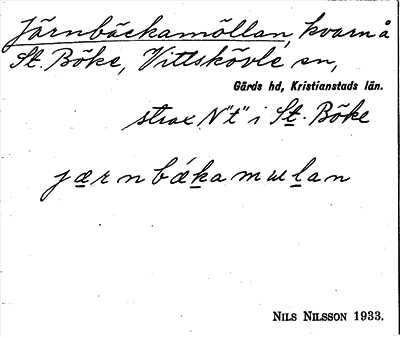 Järnbäckamöllan, kvarn å
St. Böke, Vittskövle sn,
Gärds hd, Kristianstads län.
strax N "t" i St. Böke
jærnbækamulan
NILS NILSSON 1933.